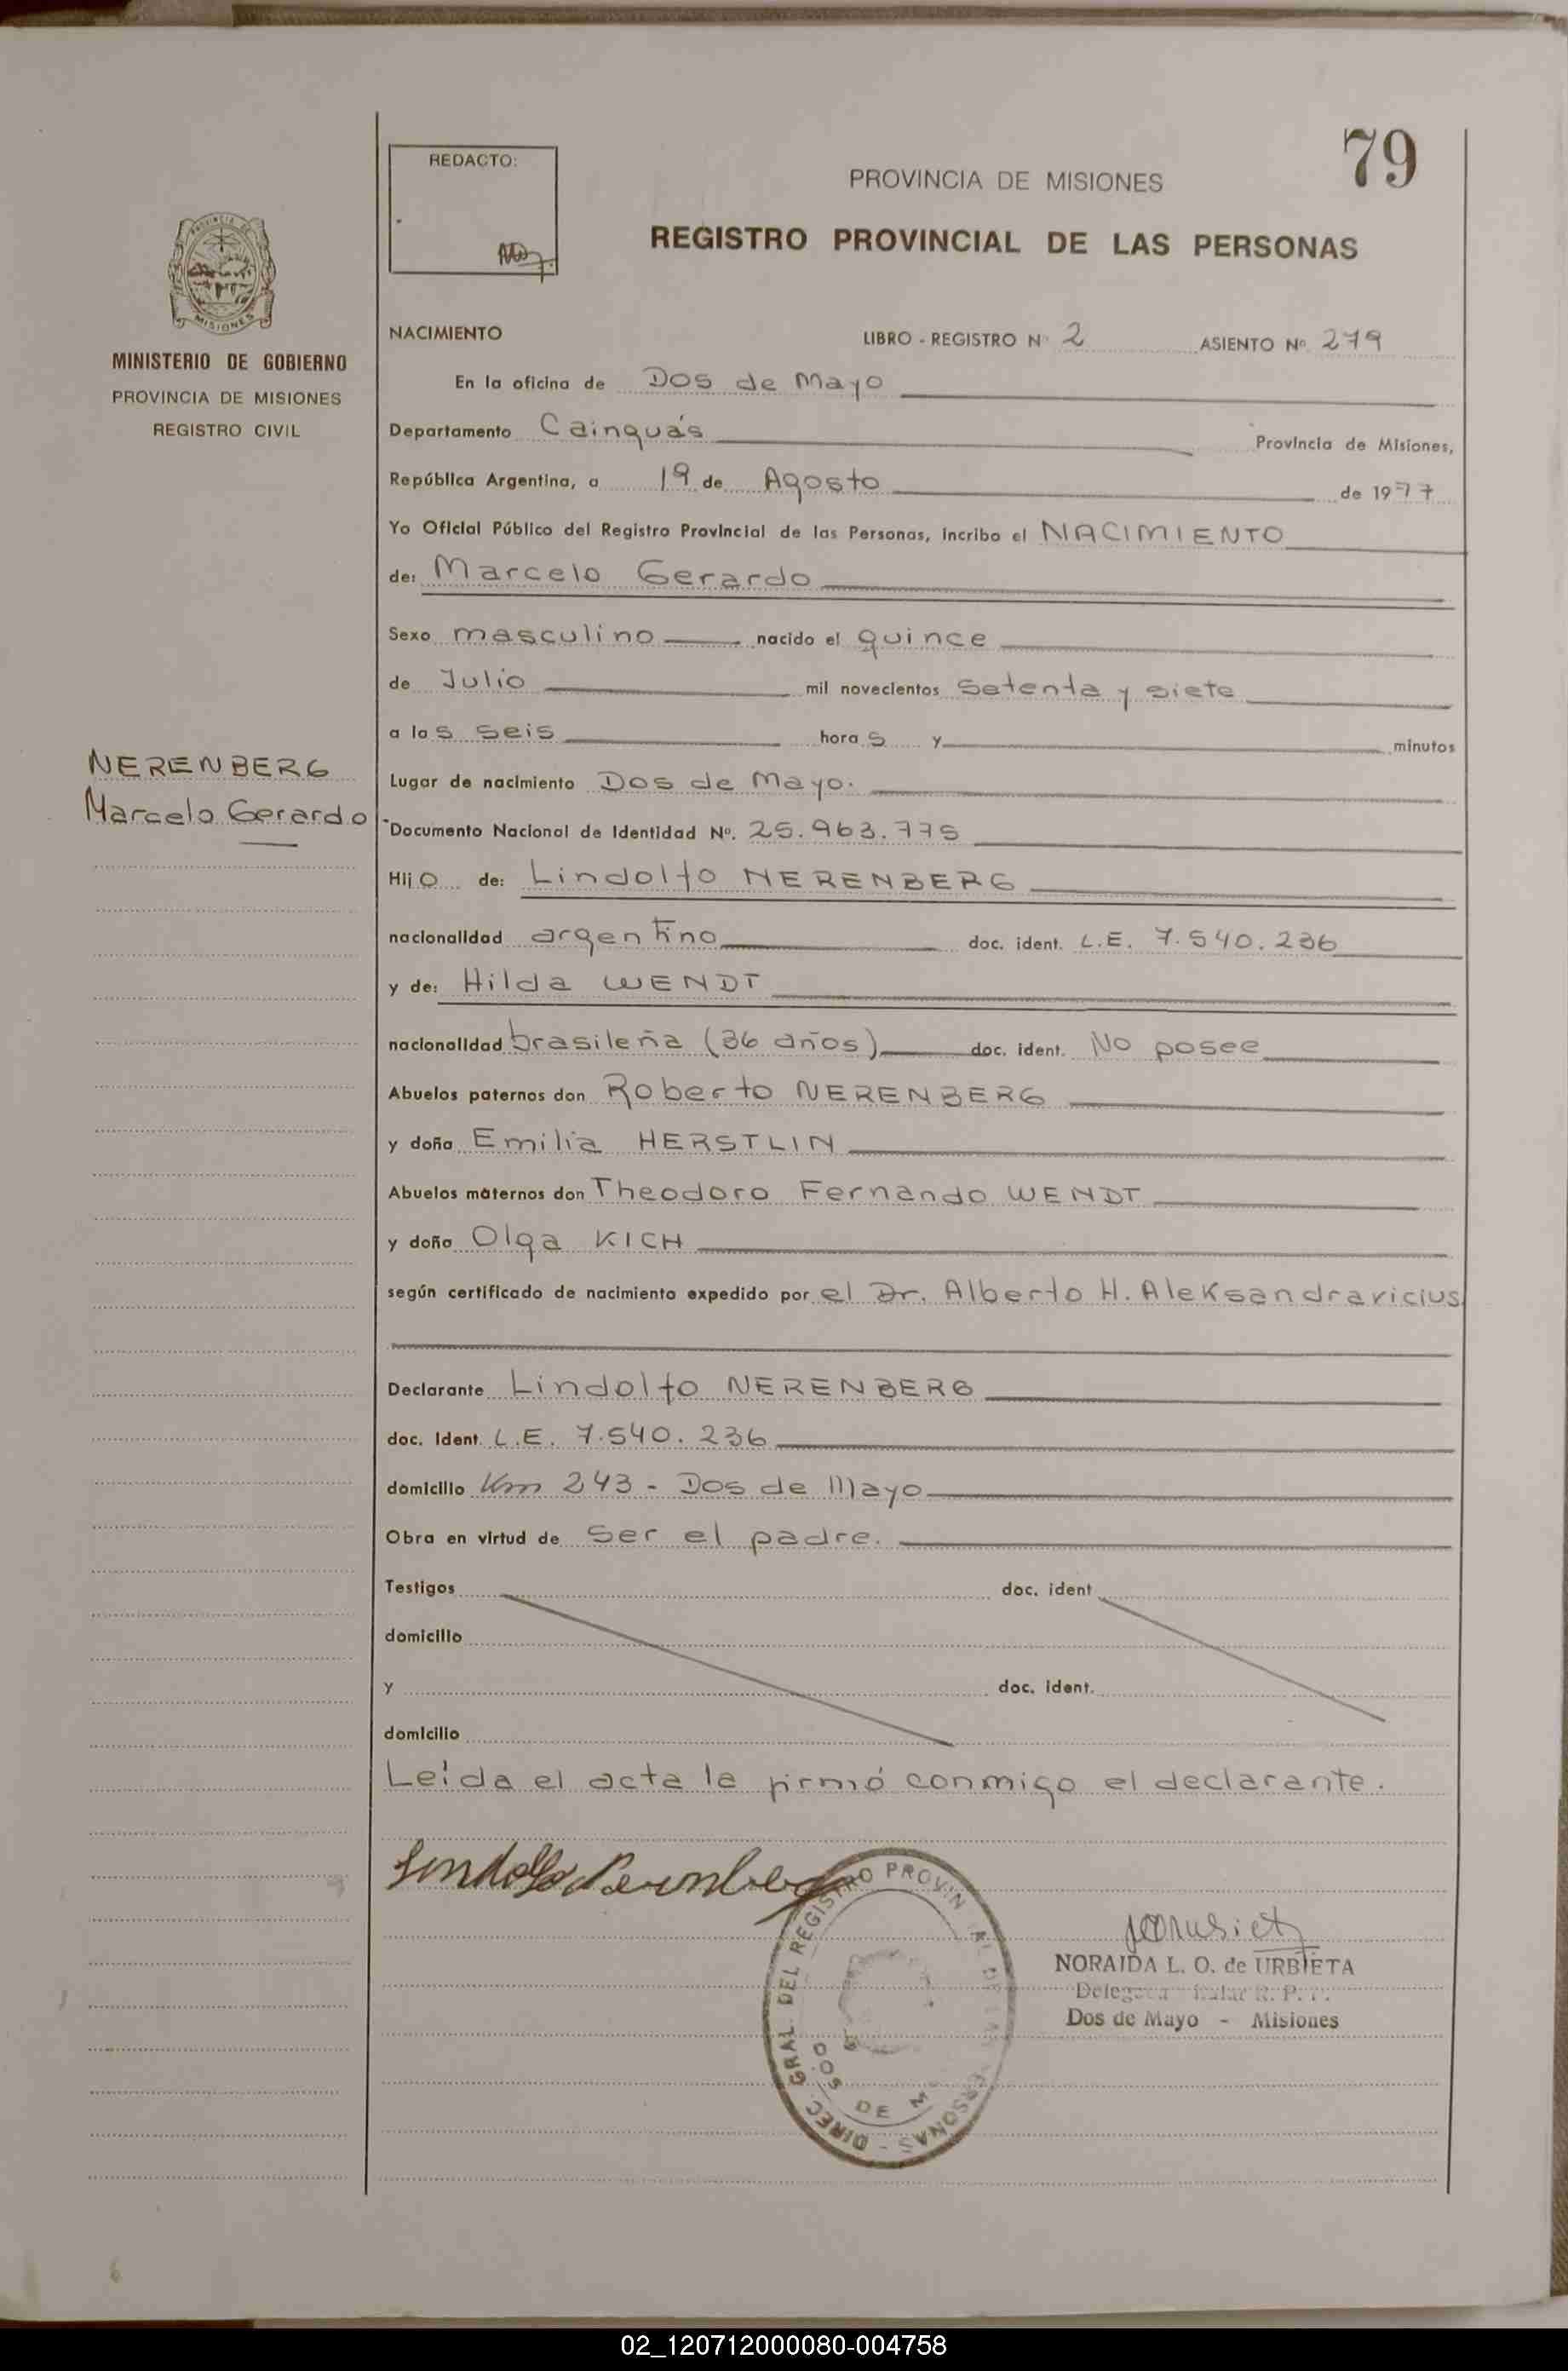 79
REDACTO:
PROVINCIA DE MISIONES
REGISTRO PROVINCIAL DE LAS PERSONAS
MISIONES
MINISTERIO DE GOBIERNO
PROVINCIA DE MISIONES
REGISTRO CIVIL
NACIMIENTO LIBRO - REGISTRO Nº 2 ASIENTO Nº 279
En la oficina de Dos de Mayo
Departamento Cainguás Provincia de Misiones,
República Argentina, a 19 de Agosto de 1977
Yo Oficial Público del Registro Provincial de las Personas, incribo el NACIMIENTO
de: Marcelo Gerardo
Sexo masculino nacido el quince
de Julio mil novecientos setenta y siete
a las seis horas y minutos
NERENBERG
Marcelo Gerardo
Lugar de nacimiento Dos de Mayo.
Documento Nacional de Identidad Nº. 25.963.775
Hijo de: Lindolfo NERENBERG
nacionalidad argentino doc. ident. L.E. 7.540.236
y de: Hilda WENDT
nacionalidad brasileña (36 años) doc. ident. No posee
Abuelos paternos don Roberto NERENBERG
y doña Emilia HERSTLIN
Abuelos maternos don Theodoro Fernando WENDT
y doña Olga KICH
según certificado de nacimiento expedido por el Dr. Alberto H. Aleksandravicius
Declarante Lindolfo NERENBERG
doc. Ident. L.E. 7.540.236
domicilio Km 243 - Dos de Mayo
Obra en virtud de ser el padre.
Testigos doc. ident
domicilio
y doc. ident.
domicilio
Leída el acta la firmó conmigo el declarante.
DIREC. GRAL. DEL REGISTRO PROVIN AL DE LAS PERSONAS -
DOS DE M
NORAIDA L. O. de URBIETA
R. P.
Dos de Mayo - Misiones
02_120712000080-004758